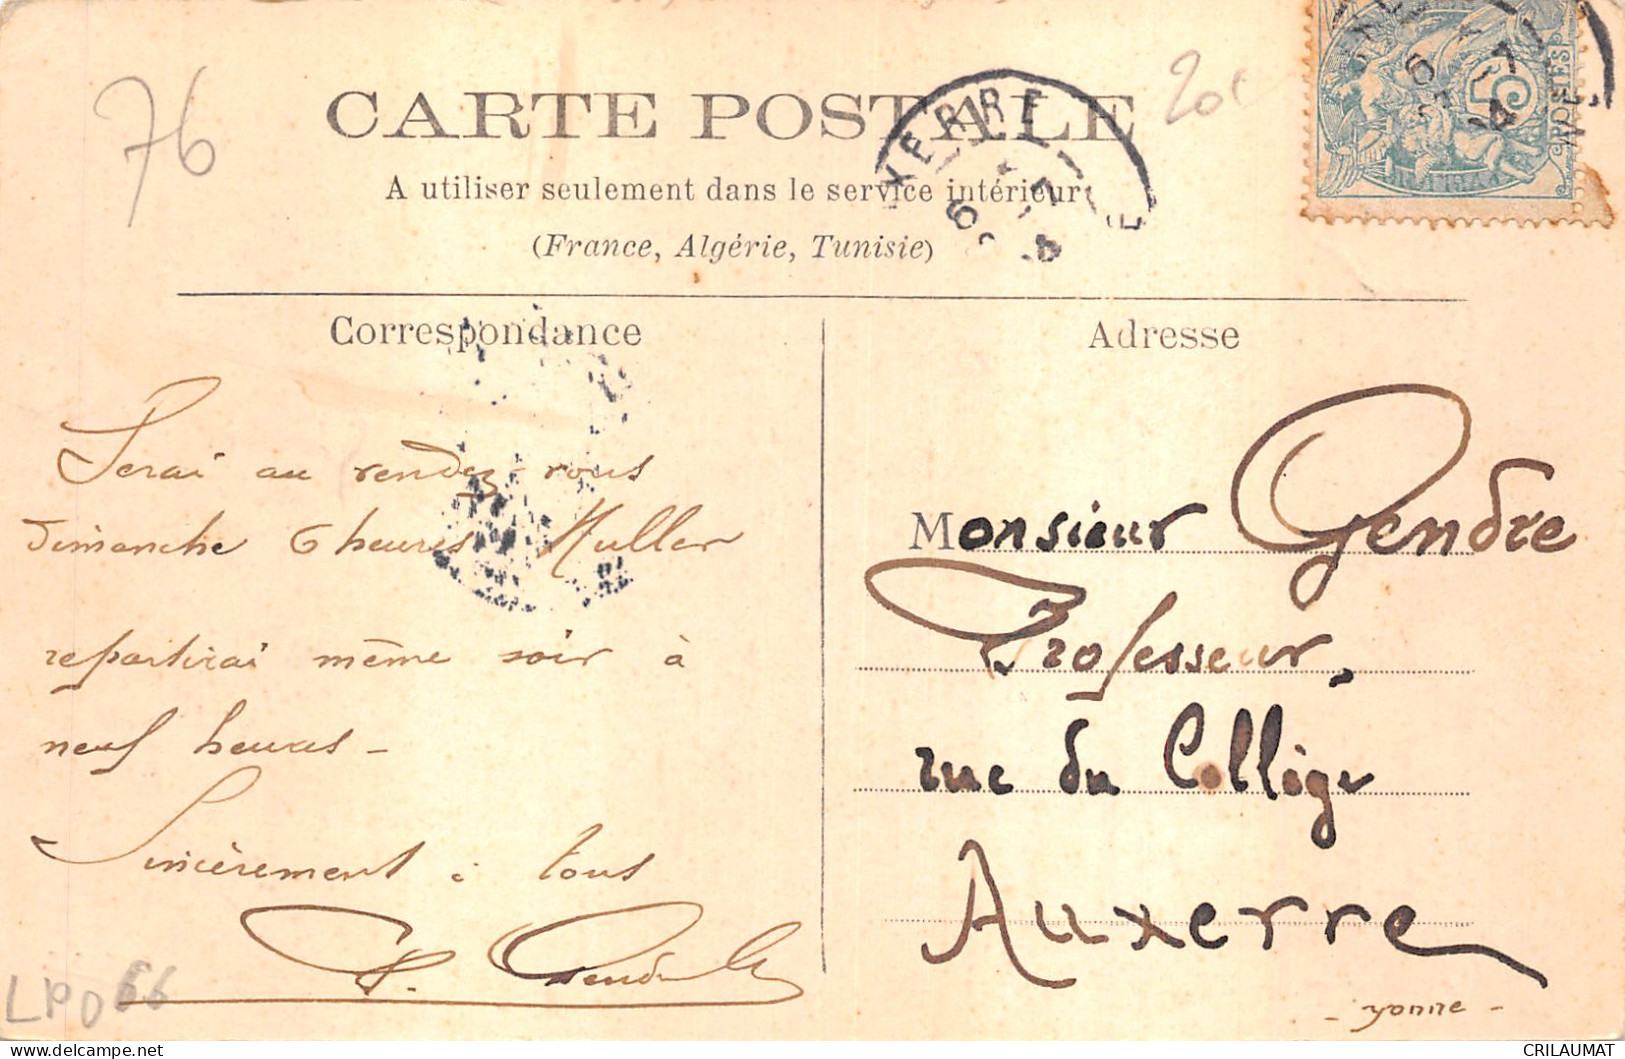 76
20c
CARTE POSTALE
A utiliser seulement dans le service intérieur
(France, Algérie, Tunisie)
POSTES
5
XERRE
Correspondance
Adresse
Serai au rendez-vous
Dimanche 6 heures Muller
repartirai même soir à
neuf heures -
Sincèrement à tous
Monsieur Gendre
Professeur,
rue du Collège
Auxerre
- yonne -
LPD 66
CRILAUMAT